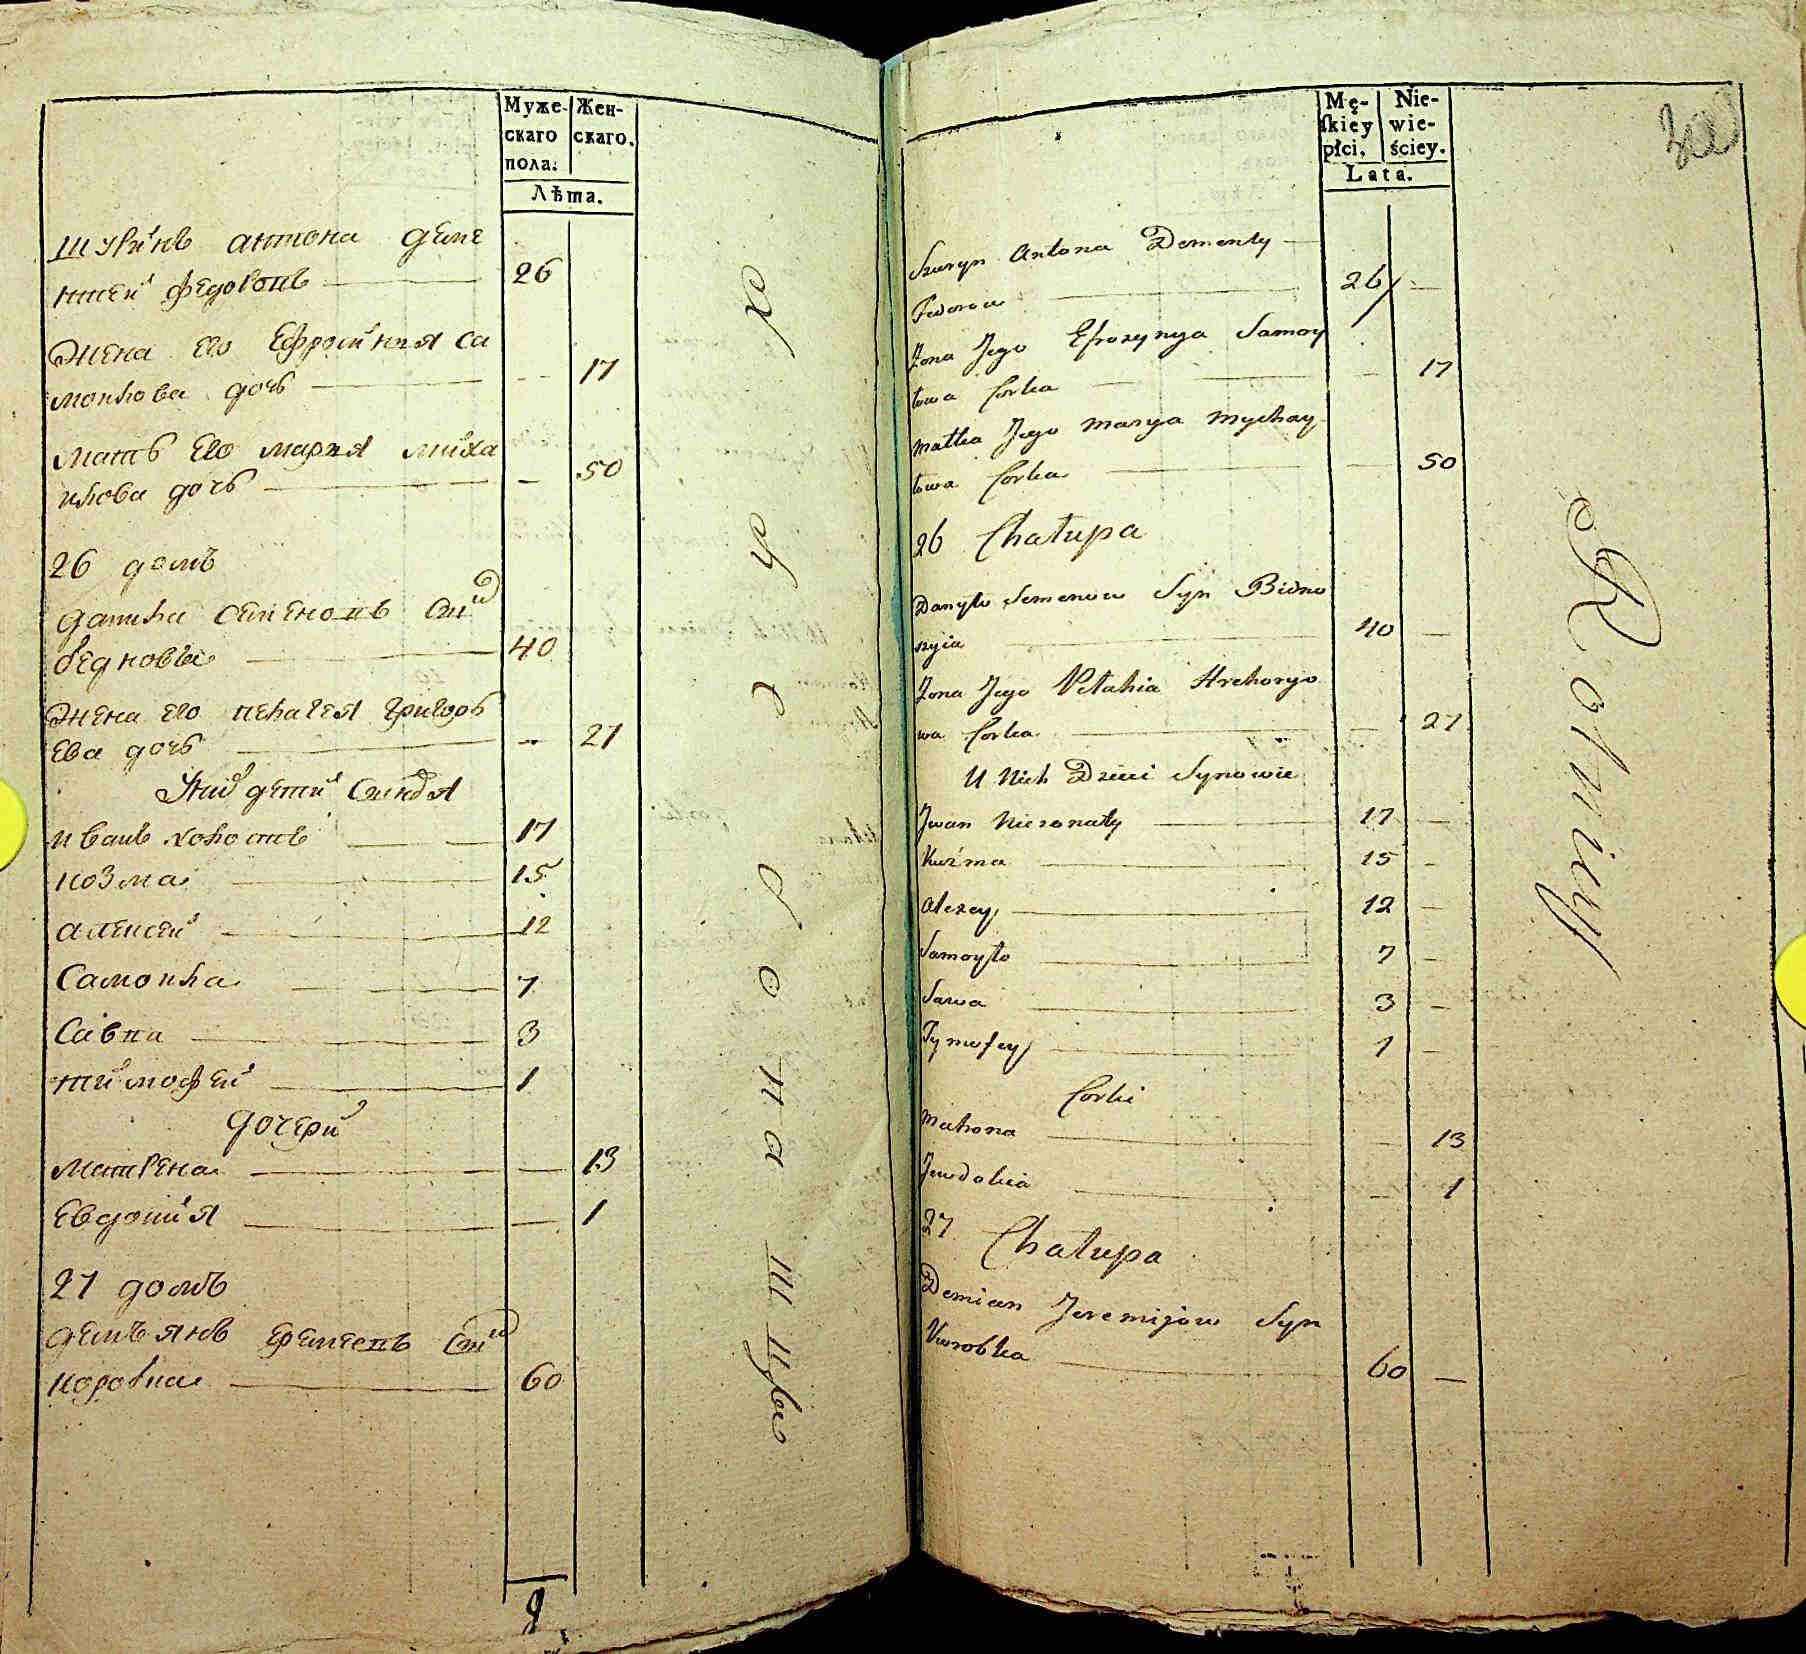 Муже-
скаго
пола.
Жен-
скаго.
Лѣта.
Шуринъ антона деме
нтей федоровъ 26
Жена его Ефросиния са
мойлова дочь 17
Мать его мария миха
йлова дочь 50
26 домъ
данила семеновъ сынъ
бедновыи 40
Жена его пелагея григорь
ева дочь 27
У них дети сыновья
иванъ холостъ 17
козма 15
алексей 12
Самойла 7
Савка 3
тимофей 1
дочери
Матрена 13
Евдокия 1
27 домъ
демьянъ еремеевъ сынъ
коробка 60
9
Mę-
skiey
płci,
Nie-
wie-
ściey.
Lata.
Szuryn Antona Dementy
Fedorow 26
Zona Jego Efrozynya Samoy
łowa Corka 17
Matka Jego Marya Mychay
łowa Corka 50
26 Chałupa
Danyło Semenow Syn Bidno
szyia 40
Zona Jego Petahia Hrehoryo
wa Corka 27
U Nich Dzieci Synowie
Jwan Niezonaty 17
Kuźma 15
Alexey 12
Samoyło 7
Sawa 3
Tymofey 1
Corki
Matrona 13
Jewdokia 1
27 Chałupa
Demian Jeremijow Syn
Korobka 60
Rolnicy